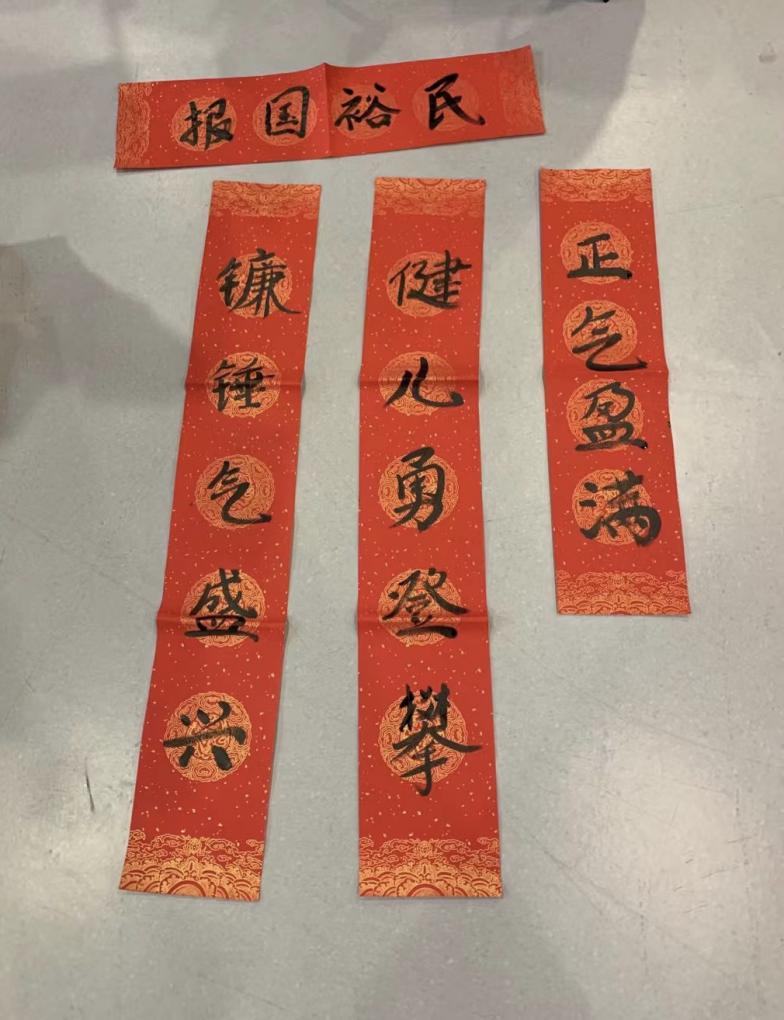 报国裕民
镰锤气盛兴
健儿勇登攀
正气盈满